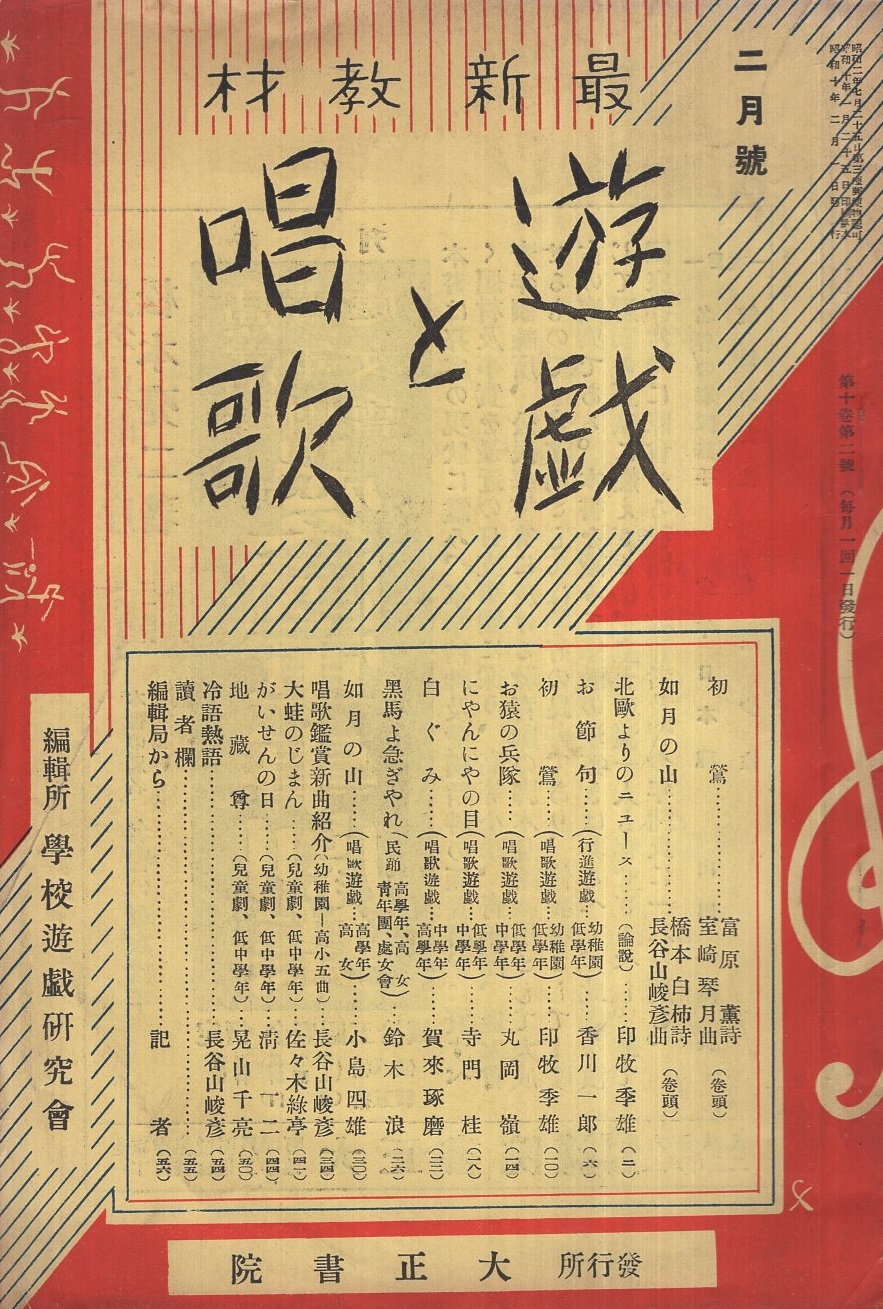 最新教材
遊戯
と
唱歌
二月號
昭和二年七月二十五日第三種郵便物認可
昭和十年一月二十五日印刷納本
昭和十年二月一日發行
第十卷第二號（每月一回一日發行）
初鶯……………富原薫詩 室崎琴月曲（卷頭）
如月の山……………橋本白柿詩 長谷山峻彦曲（卷頭）
北歐よりのニュース……（論說）……印牧季雄（二）
お節句……（行進遊戲…幼稚園 低學年）……香川一郎（六）
初鶯……（唱歌遊戲…幼稚園 低學年）……印牧季雄（一〇）
お猿の兵隊……（唱歌遊戲…低學年 中學年）……丸岡嶺（一四）
にやんにやの目（唱歌遊戲…低學年 中學年）……寺門桂（一八）
白ぐみ……（唱歌遊戲…中學年 高學年）……賀來琢磨（二三）
黑馬よ急ぎやれ（民踊 高學年、高女 靑年團、處女會）…鈴木浪（二六）
如月の山……（唱歌遊戲…高學年 高女）……小島四雄（三〇）
唱歌鑑賞新曲紹介（幼稚園—高小五曲）…長谷山峻彦（三四）
大蛙のじまん……（兒童劇、低中學年）…佐々木綠亭（四一）
がいせんの日……（兒童劇、低中學年）…淸一二（四四）
地藏尊……（兒童劇、低中學年）…晃山千亮（五〇）
冷語熱語……………長谷山峻彦（五四）
讀者欄……………（五五）
編輯局から……………記者（五六）
編輯所 學校遊戲研究會
發行所 大正書院